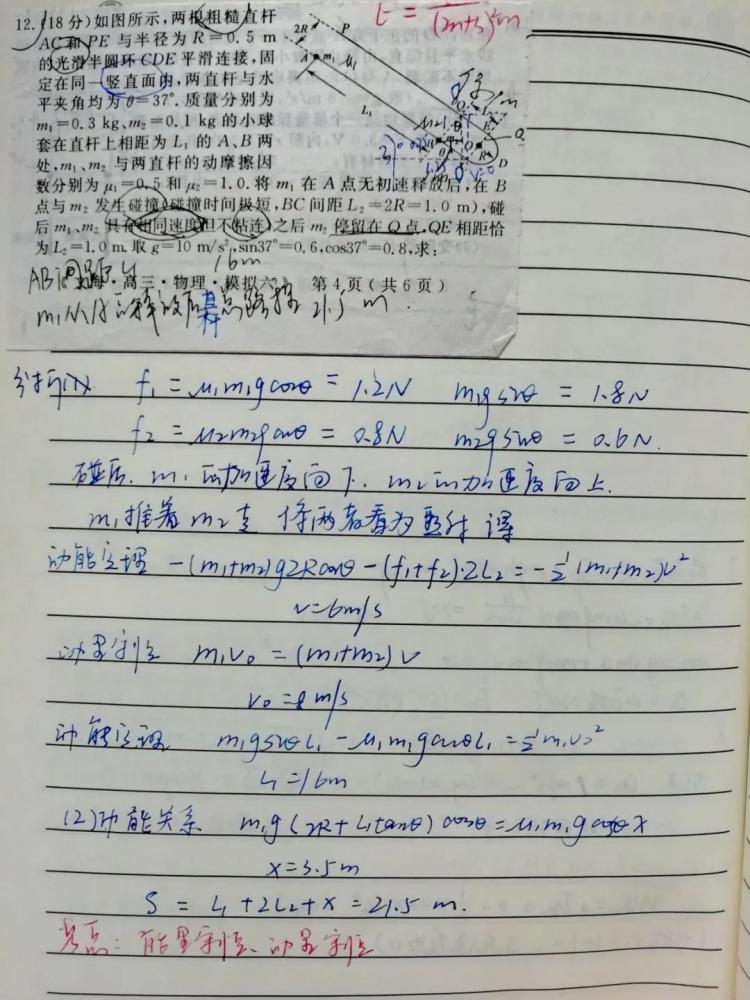 t = / (2n+2)²m
12.(18分)如图所示,两根粗糙直杆
AC和PE与半径为R=0.5 m
的光滑半圆环CDE平滑连接,固
定在同一竖直面内,两直杆与水
平夹角均为θ=37°.质量分别为
m₁=0.3 kg、m₂=0.1 kg的小球
套在直杆上相距为L₁的A、B两
处,m₁、m₂与两直杆的动摩擦因
数分别为μ₁=0.5和μ₂=1.0.将m₁在A点无初速释放后,在B
点与m₂发生碰撞(碰撞时间极短,BC间距L₂=2R=1.0 m),碰
后m₁、m₂具有相同速度但不粘连,之后m₂停留在Q点,QE相距恰
为L₂=1.0 m.取g=10 m/s²,sin37°=0.6,cos37°=0.8,求:
AB间距L₁ 16m
·高三·物理·模拟六》 第4页(共6页)
m₁从A释放后 总路程 21.5 m.
2R P
A m₁ μ₁
L₁
D
分析(1) f₁ = μ₁m₁gcosθ = 1.2N m₁gsinθ = 1.8N
f₂ = μ₂m₂gcosθ = 0.8N m₂gsinθ = 0.6N.
碰后. m₁的加速度向下. m₂的加速度向上.
m₁推着m₂走 将两者看为整体 得
动能定理 -(m₁+m₂)g2Rcosθ-(f₁+f₂)·2L₂=-½(m₁+m₂)v²
v=6m/s
动量守恒 m₁v₀=(m₁+m₂)v
v₀=8m/s
动能定理 m₁gsinθL₁-μ₁m₁gcosθL₁=½m₁v₀²
L₁=16m
(2)功能关系 m₁g(2R+L₁tanθ)cosθ=μ₁m₁gcosθx
x=3.5m
S = L₁+2L₂+x=21.5 m.
考点:能量守恒、动量守恒